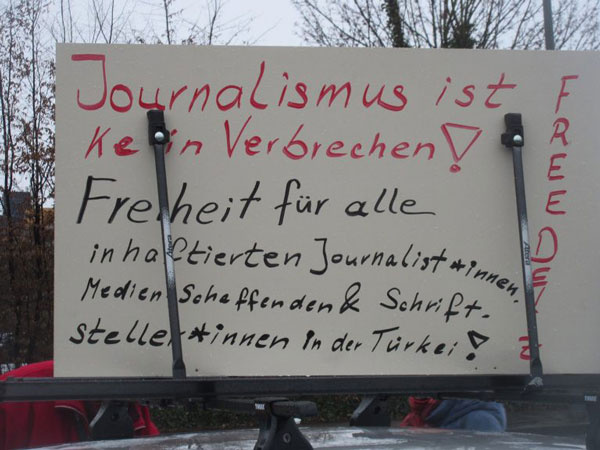 Journalismus ist
kein Verbrechen!
Freiheit für alle
inhaftierten Journalist*innen,
Medien Schaffenden & Schrift-
steller*innen in der Türkei!
FREE DENIZ
THULE